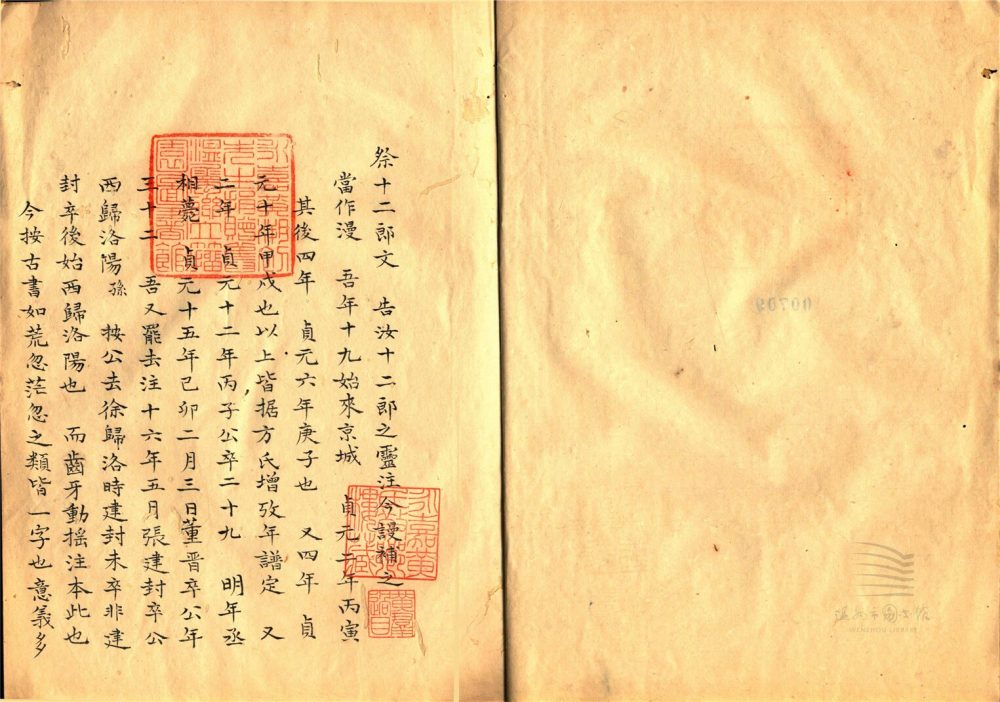 祭十二郎文　告汝十二郎之靈注今謾補之
當作漫　吾年十九始來京城　貞元二年丙寅
其後四年　貞元六年庚子也　又四年　貞
元十年甲戌也以上皆据方氏增攷年譜定　又
二年　貞元十二年丙子公卒二十九　明年丞
相薨　貞元十五年己卯二月三日董晋卒公年
三十二　吾又罷去注十六年五月張建封卒公
西歸洛陽孫　按公去徐歸洛時建封未卒非建
封卒後始西歸洛陽也　而齒牙動揺注本此也
今按古書如荒忽茫忽之類皆一字也意義多
00709
温州市图书馆
WENZHOU LIBRARY